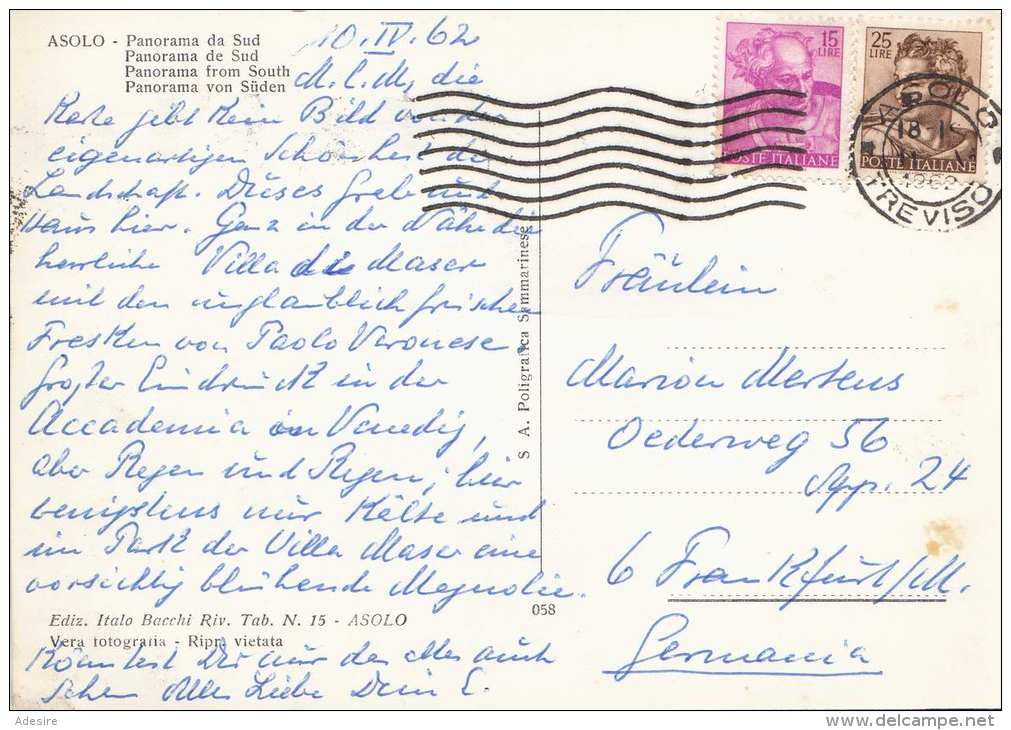 ASOLO - Panorama da Sud
Panorama de Sud
Panorama from South
Panorama von Süden
10. IV. 62
M. l. M, die
Karte gibt kein Bild von der
eigenartigen Schönheit der
Landschaft. Dieses
hier. Ganz in der Nähe die
herrliche Villa di Maser
mit den unglaublich frischen
Fresken von Paolo Veronese.
Großer Eindruck in der
Accademia in Venedig,
aber Regen und Regen; hier
wenigstens nur Kälte und
im Park der Villa Maser eine
vorsichtig blühende Magnolie.
Ediz. Italo Bacchi Riv. Tab. N. 15 - ASOLO
Vera fotografia - Ripr. vietata
Könntest Dir nur das alles auch
sehen Alles Liebe Dein E.
058
S. A. Poligrafica Sammarinese
15 LIRE
POSTE ITALIANE
25 LIRE
POSTE ITALIANE
ASOLO
TREVISO
Fräulein
Marion Mertens
Oederweg 56
App. 24
6 Frankfurt/M.
Germania
Adesire
www.delcampe.net